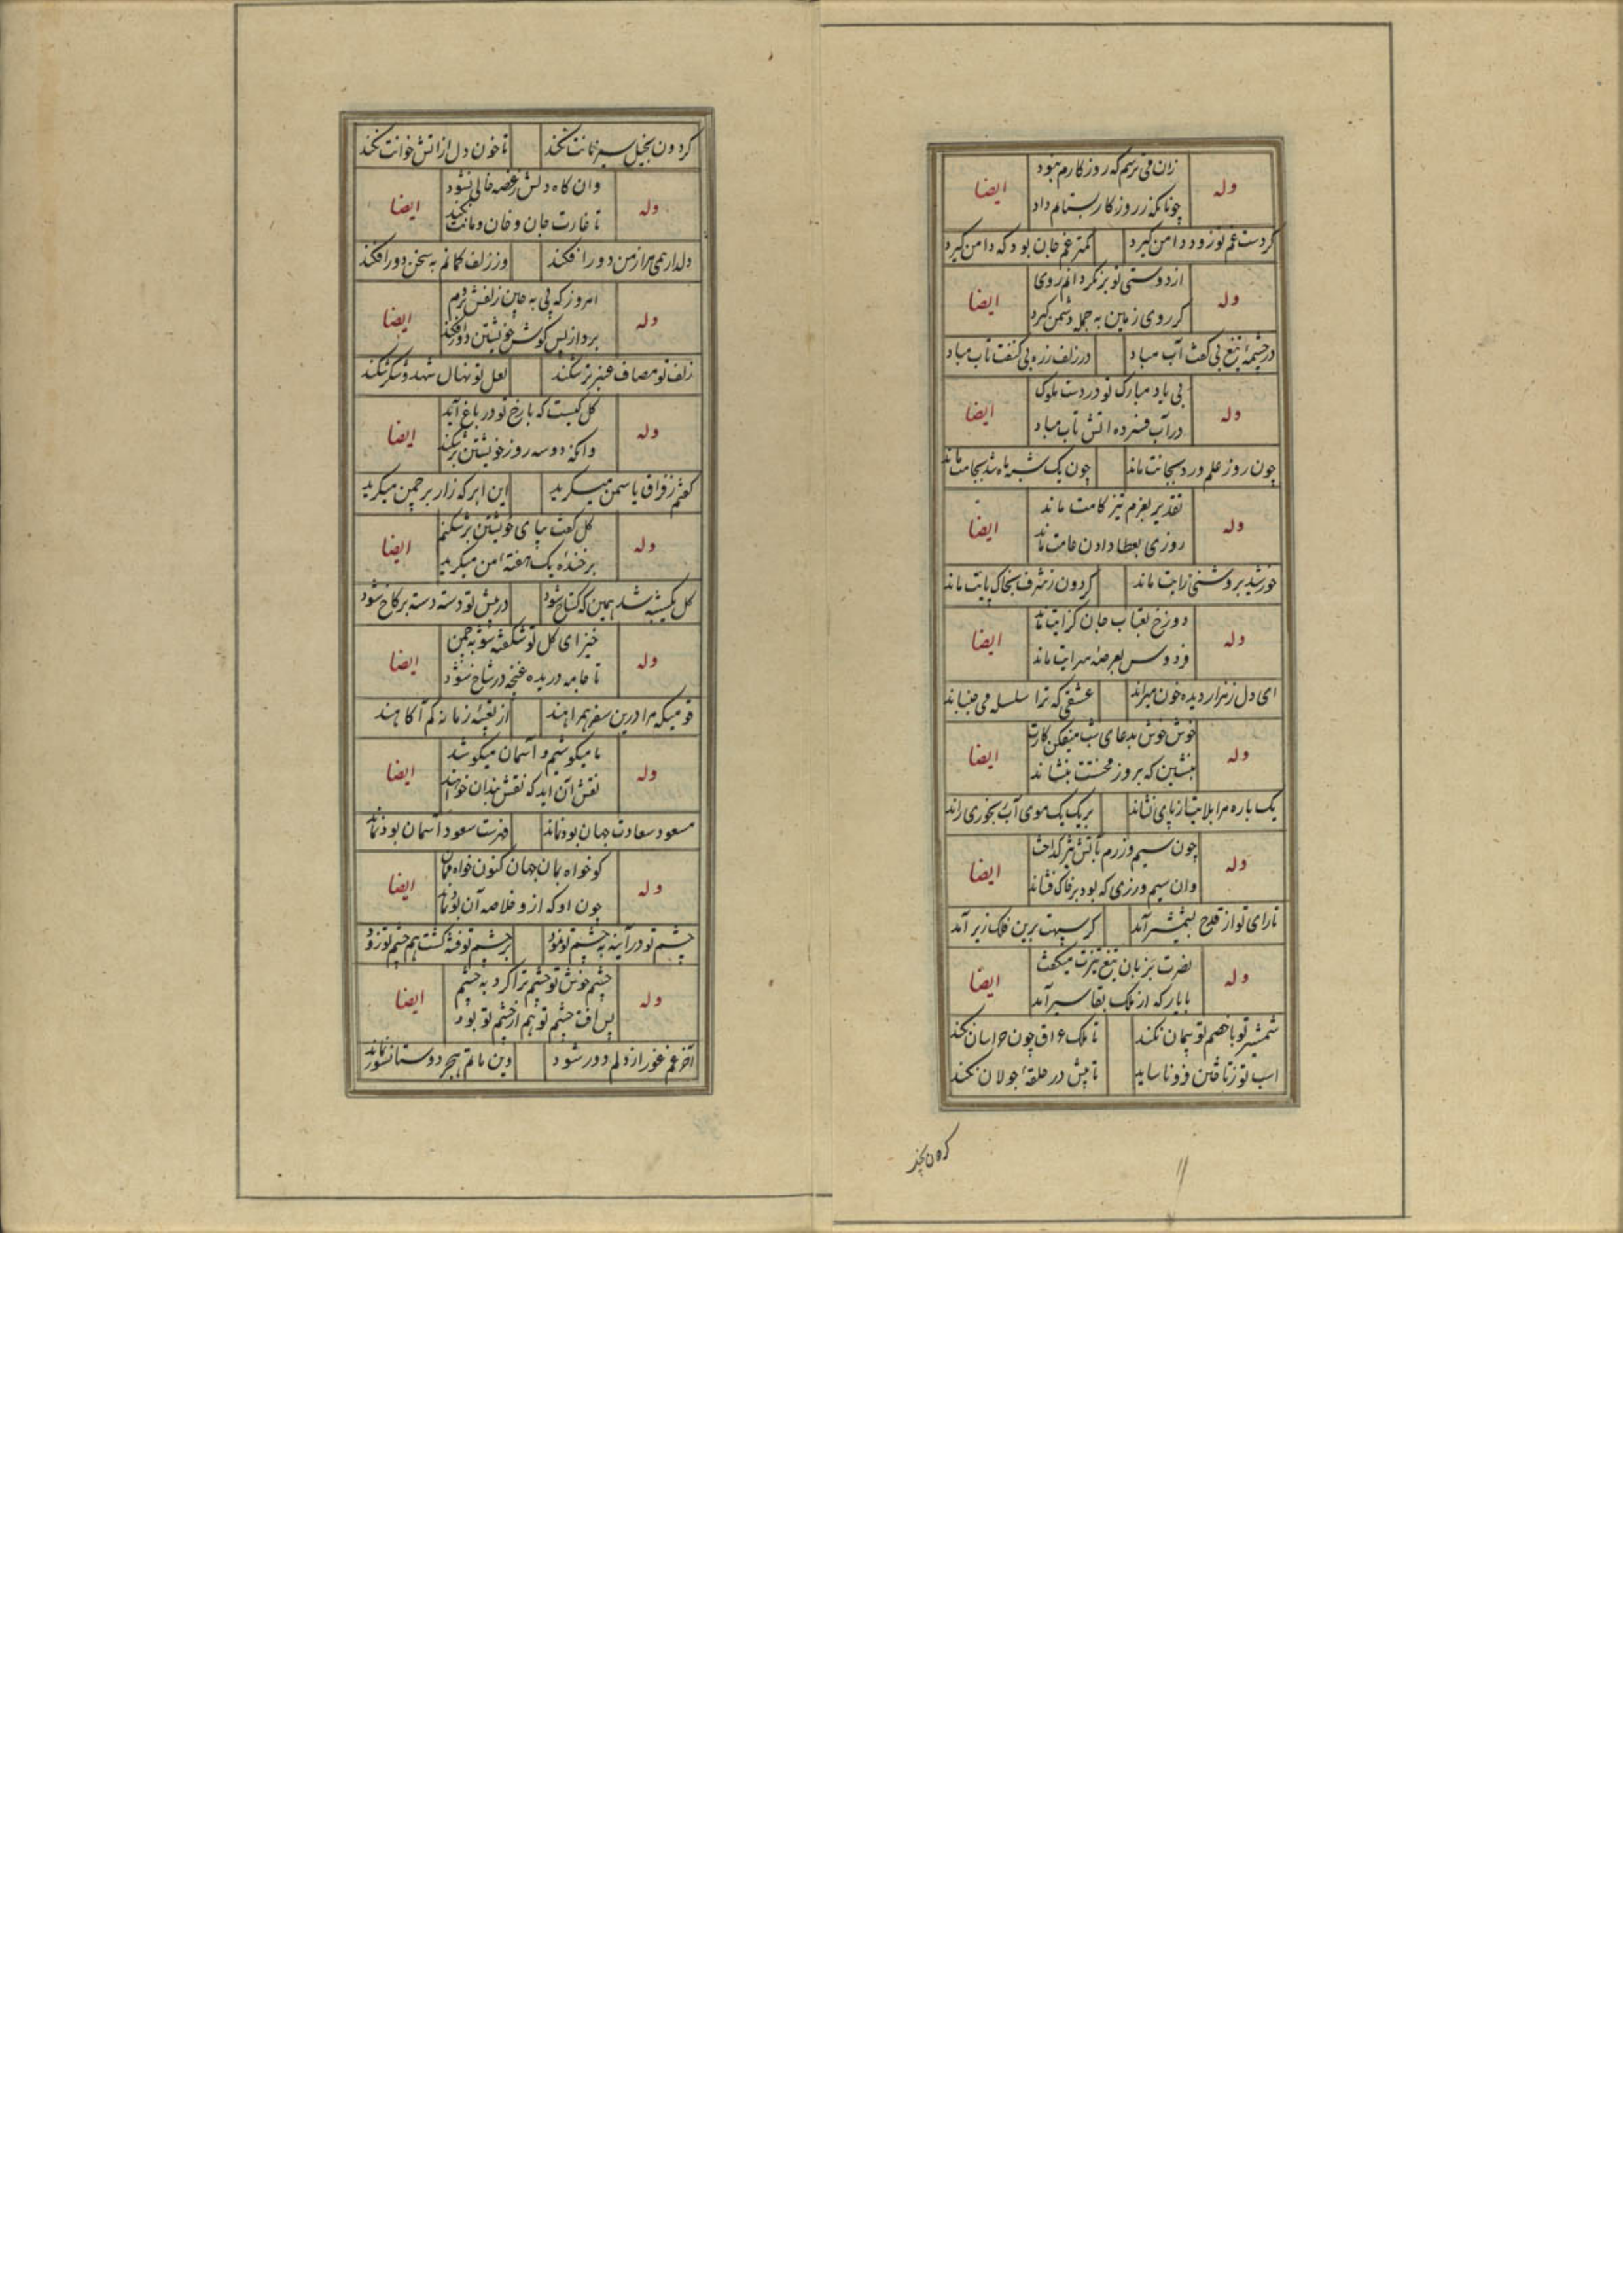 زان می ترسم که روز کارم نبود
وله ایضا
چونانکه ز روز کار بستانم داد
کردست غم تو زود دامن کیرد کمتر غم جان بود که دامن کیرد
از دوستی تو بر نکردانم روی
وله ایضا
کر روی زمین به جمله دشمن کیرد
در چشمهٔ تیغ بی کفت آب مباد در زلف زره بی کنفت تاب مباد
بی یاد مبارک تو در دست ملوک
وله ایضا
در آب فسرده اتش ناب مباد
چون روز علم ورد بحسامت ماند چون یک شبه ماه شد بجامت ماند
تقدیر بعزم تیز کامت ماند
وله ایضا
روزی بعطا دادن عامت ماند
خورشید بروشنی رایت ماند کردون ز شرف بخاک پایت ماند
دوزخ بعتاب جان کزایت ماند
وله ایضا
فردوس بعرصهٔ سرایت ماند
ای دل ز هزار دیده خون میراند عشقی که ترا سلسله می جنباند
خوش خوش بدعای شب میفکن کارت
وله ایضا
بنشین که بروز محنتت بنشاند
یک باره مرا بلایت از پای نشاند بر یک یک موی آب بخوری راند
چون سیم و زرم بآتش تیز کداخت
وله ایضا
وان سیم و زری که بود بر خاک فشاند
تا رای تو از قدح بشمشیر آمد کر سپهت برین فلک زیر آمد
نصرت بزبان تیغ تیزت میکفت
وله ایضا
با یار که از ملک بقا سیر آمد
شمشیر تو با خصم تو پیمان نکند تا ملک عراق چون خراسان نکند
اسب تو ز تاختن فرو ناساید تا پیش در حلقهٔ جولان نکند
کردون بخیل
کردون بخیل سیر نانت نکند تا خون دل از آتش خوانت نکند
وان کاه دلش ز غصه خالی نشود
وله ایضا
تا غارت جان و خان و مانت نکند
دلدار همی مرا ز من دور افکند وز زلف کمانم به سخن دور افکند
امروز که پی به چین زلفش بردم
وله ایضا
برد از پس کوش خویشتن دور افکند
زلف تو مصاف عنبر تر شکند لعل تو نهال شهد و شکر شکند
کل کیست که با رخ تو در باغ آید
وله ایضا
وانکه دو سه روز خویشتن بر شکند
کفتم ز فراق یاسمن میکرید این ابر که زار بر چمن میکرید
کل کفت بپای خویشتن بر شکنم
وله ایضا
بر خندهٔ یک هفته من میکرید
کل یکشبه شد همین که کستاخ شود در پیش تو دسته دسته بر کاخ شود
خیز ای کل تو شکفته شو به چمن
وله ایضا
تا جامه دریده غنچه در شاخ شود
قومیکه مرا درین سفر همراهند از تعبیهٔ زمانه کم آکاهند
ما میکوشیم و آسمان میکوشد
وله ایضا
نقش آن اید که نقش بندان خواهند
مسعود سعادت جهان بود نماند فهرست سعود آسمان بود نماند
کو خواه بمان جهان کنون خواه ممان
وله ایضا
چون او که ازو خلاصه آن بود نماند
چشم تو در آینه به چشم تو نمود بر چشم تو فتنه کشت هم چشم تو زود
چشم خوش تو چشم ترا کرد به چشم
وله ایضا
پس آفت چشم تو هم از چشم تو بود
آخر غم غور از دلم دور شود وین ماتم هجر دوستان سور